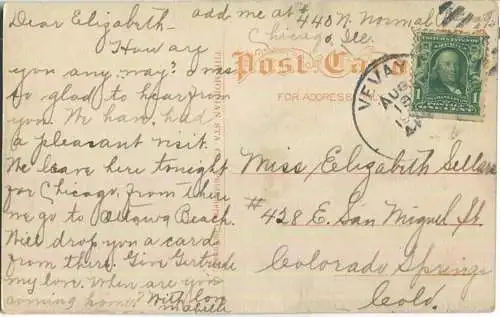 Dear Elizabeth-
add me at # 440 N. Normal
Chicago, Ill.
How are
you any way? I was
so glad to hear from
you. We have had
a pleasant visit.
We leave here tonight
for Chicago, from there
we go to Ottawa Beach.
Will drop you a card
from there. Give Gertrude
my love. When are you
coming home? With love
Mabelle
Post Card
FOR ADDRESS
VEVAY
AUG
1
Miss Elizabeth Sellers
# 428 E. San Miguel St.
Colorado Springs
Colo.